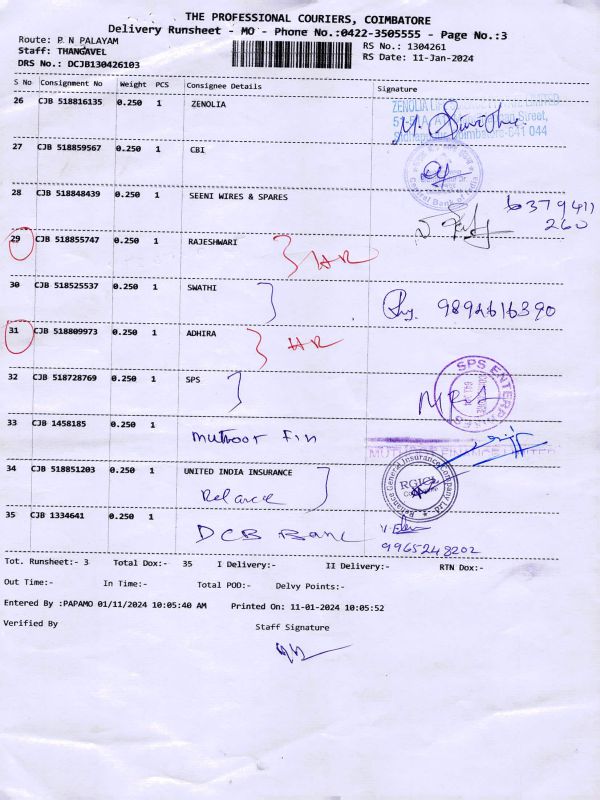 THE PROFESSIONAL COURIERS, COIMBATORE
Delivery Runsheet - MO - Phone No.:0422-3505555 - Page No.:3
Route: P. N PALAYAM
RS No.: 1304261
Staff: THANGAVEL
RS Date: 11-Jan-2024
DRS No.: DCJB130426103
S No Consignment No Weight PCS Consignee Details Signature
26 CJB 518816135 0.250 1 ZENOLIA
27 CJB 518859567 0.250 1 CBI
28 CJB 518848439 0.250 1 SEENI WIRES & SPARES 6379411
260
29 CJB 518855747 0.250 1 RAJESHWARI
30 CJB 518525537 0.250 1 SWATHI 9894616390
31 CJB 518809973 0.250 1 ADHIRA
32 CJB 518728769 0.250 1 SPS
SPS ENTERPRISES
33 CJB 1458185 0.250 1 Muthoot Fin
34 CJB 518851203 0.250 1 UNITED INDIA INSURANCE
Reliance
Reliance General Insurance Company Ltd.
RGICL
35 CJB 1334641 0.250 1 DCB Bank
9965248202
Tot. Runsheet:- 3 Total Dox:- 35 I Delivery:- II Delivery:- RTN Dox:-
Out Time:- In Time:- Total POD:- Delvy Points:-
Entered By :PAPAMO 01/11/2024 10:05:40 AM Printed On: 11-01-2024 10:05:52
Verified By Staff Signature